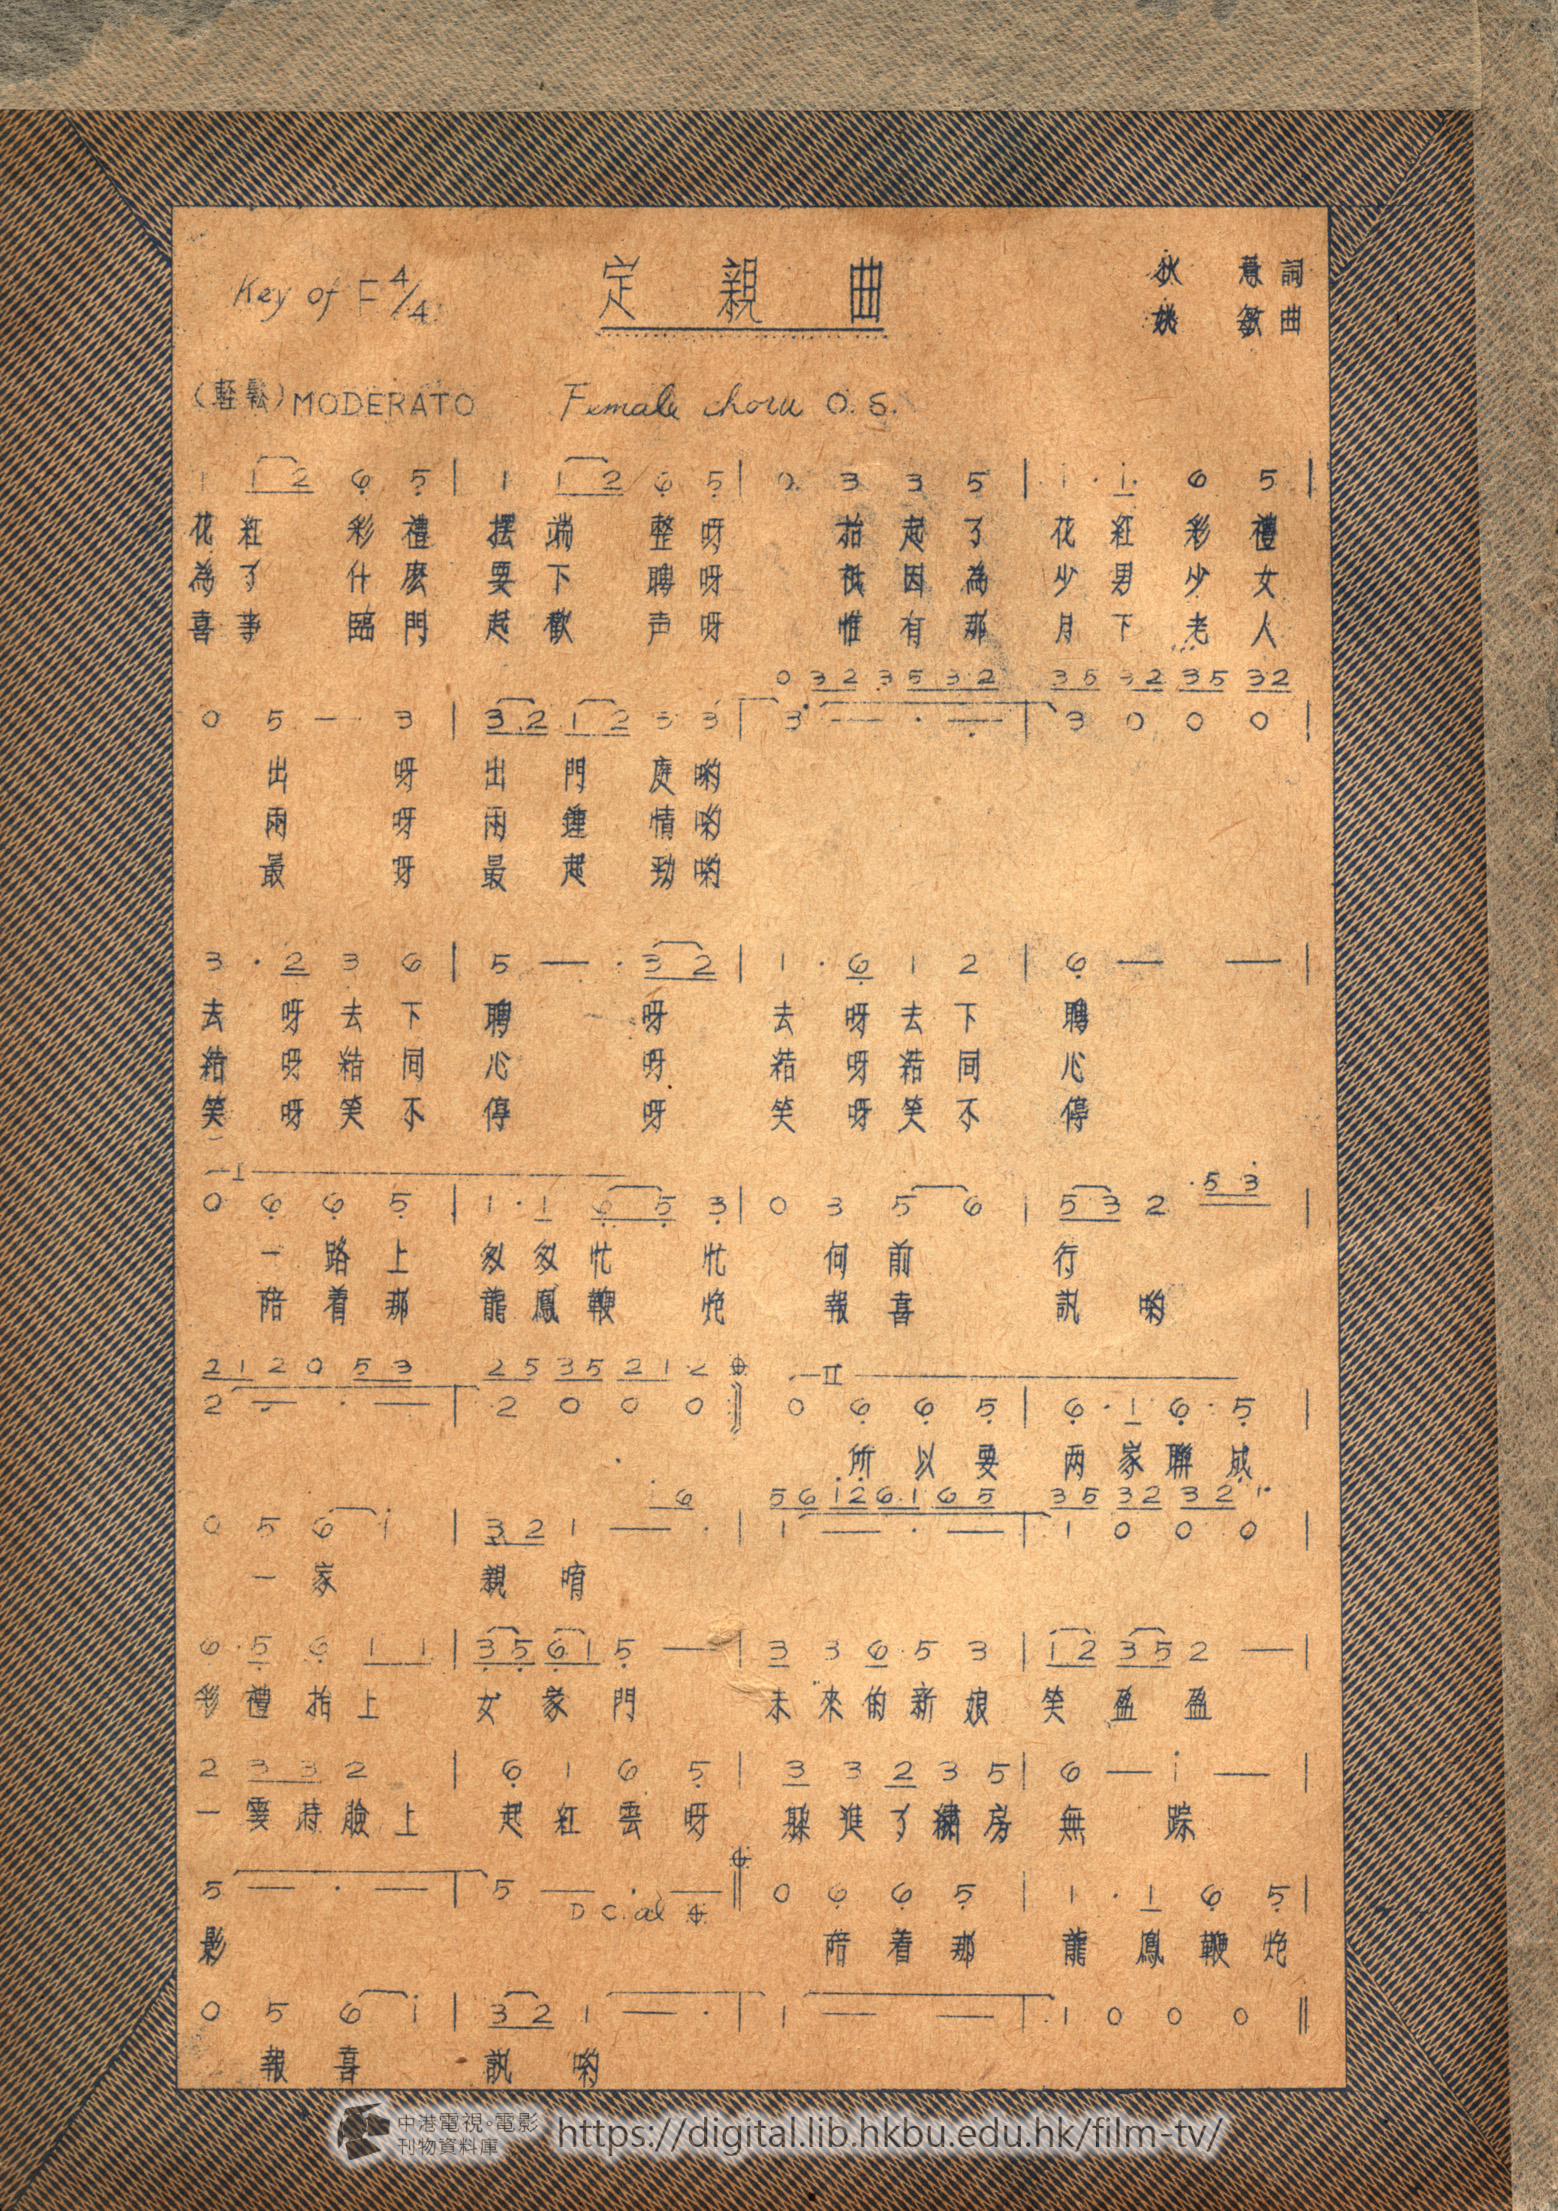 定親曲
Key of F 4/4
狄薏詞
姚敏曲
(輕鬆) MODERATO Female chorus O.S.
1 1 2 6 5 | 1 1 2 6 5 | 0 3 3 5 | i · i 6 5 |
花紅 彩禮 擺端 整呀 抬起了 花紅彩禮
為了 什麼 要下 聘呀 祇因為 少男少女
喜事 臨門 起歡 声呀 惟有那 月下老人
0 3 2 3 5 3 2 3 5 3 2 3 5 3 2
0 5 — 3 | 3 2 1 2 3 3 | 3 — · — | 3 0 0 0 |
出 呀 出門庭喲
兩 呀 兩鍾情喲
最 呀 最起勁喲
3 · 2 3 6 | 5 — · 3 2 | 1 · 6 1 2 | 6 — — |
去呀去下 聘 呀 去呀去下 聘
結呀結同 心 呀 結呀結同 心
笑呀笑不 停 呀 笑呀笑不 停
I
0 6 6 5 | 1 · 1 6 5 3 | 0 3 5 6 | 5 3 2 · 5 3 |
一路上 匆匆忙 忙 向前 行
陪着那 龍鳳鞭 炮 報喜 訊喲
2 1 2 0 5 3 2 5 3 5 2 1 2 II
2 — · — | 2 0 0 0 || 0 6 6 5 | 6 · 1 6 · 5 |
所以要 两家聯成
i 6 5 6 i 2 6 i 6 5 3 5 3 2 3 2 1
0 5 6 i | 3 2 1 — · | 1 — · — | 1 0 0 0 |
一家 親唷
6 · 5 6 1 1 | 3 5 6 1 5 — | 3 3 6 5 3 | 1 2 3 5 2 — |
彩禮抬上 女家門 未來的新娘 笑盈盈
2 3 3 2 | 6 1 6 5 | 3 3 2 3 5 | 6 — i — |
一霎時臉上 起紅雲呀 躲進了繡房 無踪
5 — · — | 5 — · — || 0 6 6 5 | 1 · 1 6 5 |
D.C. al
影 陪着那 龍鳳鞭炮
0 5 6 i | 3 2 1 — · | 1 — — | 1 0 0 0 ||
報喜 訊喲
中港電視◦電影
刊物資料庫
https://digital.lib.hkbu.edu.hk/film-tv/